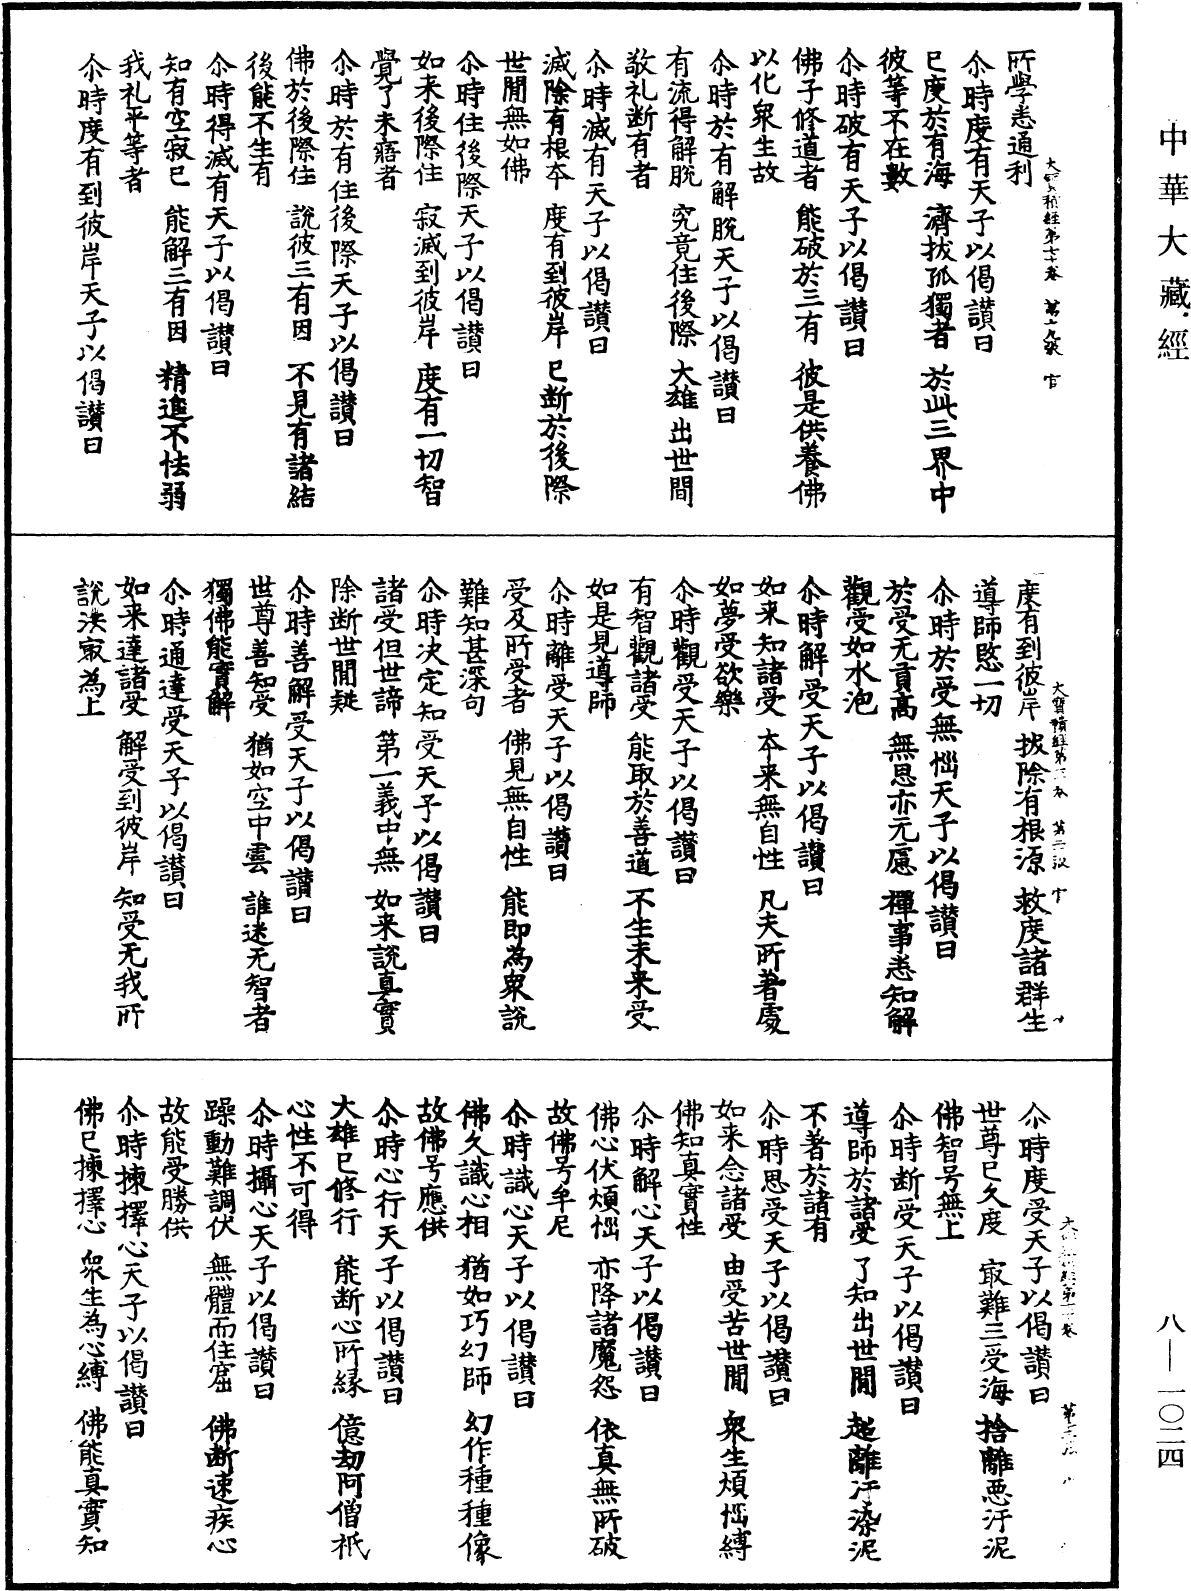 中華大藏經
所學悉通利
尒時度有天子以偈讃曰
已度於有海　濟拔孤獨者　於此三界中
彼等不在數
尒時破有天子以偈讃曰
佛子修道者　能破於三有　彼是供養佛
以化衆生故
尒時於有解脫天子以偈讃曰
有流得解脫　究竟住後際　大雄出世間
敬礼断有者
尒時滅有天子以偈讃曰
滅除有根本　度有到彼岸　已断於後際
世間無如佛
尒時住後際天子以偈讃曰
如来後際住　寂滅到彼岸　度有一切智
覺了未寤者
尒時於有住後際天子以偈讃曰
佛於後際住　說彼三有因　不見有諸結
後能不生有
尒時得滅有天子以偈讃曰
知有空寂已　能解三有因　精進不怯弱
我礼平等者
尒時度有到彼岸天子以偈讃曰
度有到彼岸　拔除有根源　救度諸群生
導師愍一切
尒時於受無惱天子以偈讃曰
於受无貢高　無恩亦元慮　禪事悉知解
觀受如水泡
尒時解受天子以偈讃曰
如来知諸受　本来無自性　凡夫所著處
如夢受欲樂
尒時觀受天子以偈讃曰
有智觀諸受　能取於善道　不生未来受
如是見導師
尒時離受天子以偈讃曰
受及所受者　佛見無自性　能即為衆說
難知甚深句
尒時决定知受天子以偈讃曰
諸受但世諦　第一義中無　如来說真實
除断世間疑
尒時善解受天子以偈讃曰
世尊善知受　猶如空中雲　誰迷无智者
獨佛能實解
尒時通達受天子以偈讃曰
如来達諸受　解受到彼岸　知受无我所
說法寂為上
尒時度受天子以偈讃曰
世尊已久度　寂難三受海　捨離悪汙泥
佛智号無上
尒時断受天子以偈讃曰
導師於諸受　了知出世間　超離汙染泥
不著於諸有
尒時思受天子以偈讃曰
如来念諸受　由受苦世間　衆生煩惱縛
佛知真實性
尒時解心天子以偈讃曰
佛心伏煩惱　亦降諸魔怨　依真無所破
故佛号牟尼
尒時識心天子以偈讃曰
佛久識心相　猶如巧幻師　幻作種種像
故佛号應供
尒時心行天子以偈讃曰
大雄已修行　能断心所緣　億劫阿僧祇
心性不可得
尒時攝心天子以偈讃曰
躁動難調伏　無體而住窟　佛断速疾心
故能受勝供
尒時揀擇心天子以偈讃曰
佛已揀擇心　衆生為心縛　佛能真實知
八—一〇二四